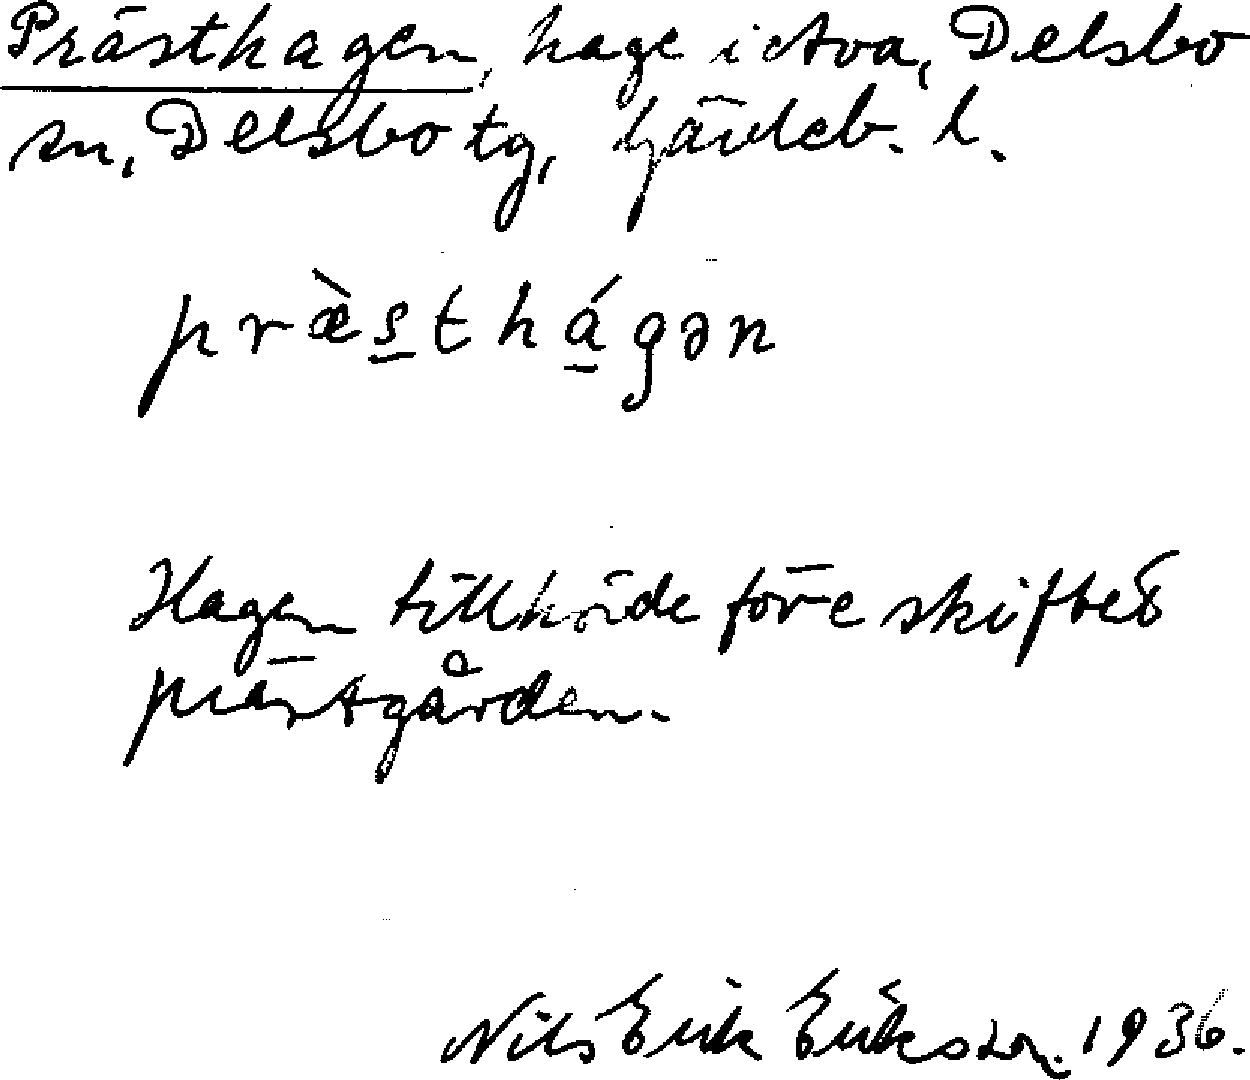 Prästhagen, hage i Ava, Delsbo
sn, Delsbo tg, Gävleb. l.
præ̀s̲thá̲gən
Hagen tillhörde före skiftet
prästgården.
Nils Erik Eriksson. 1936.